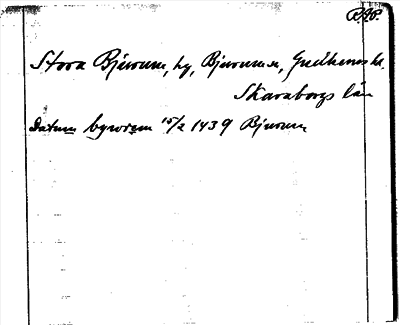 RAP.
Stora Bjurum, hg, Bjurums sn, Gudhems hd.
Skaraborgs län
Datum bywrem 15/2 1439 Bjurum